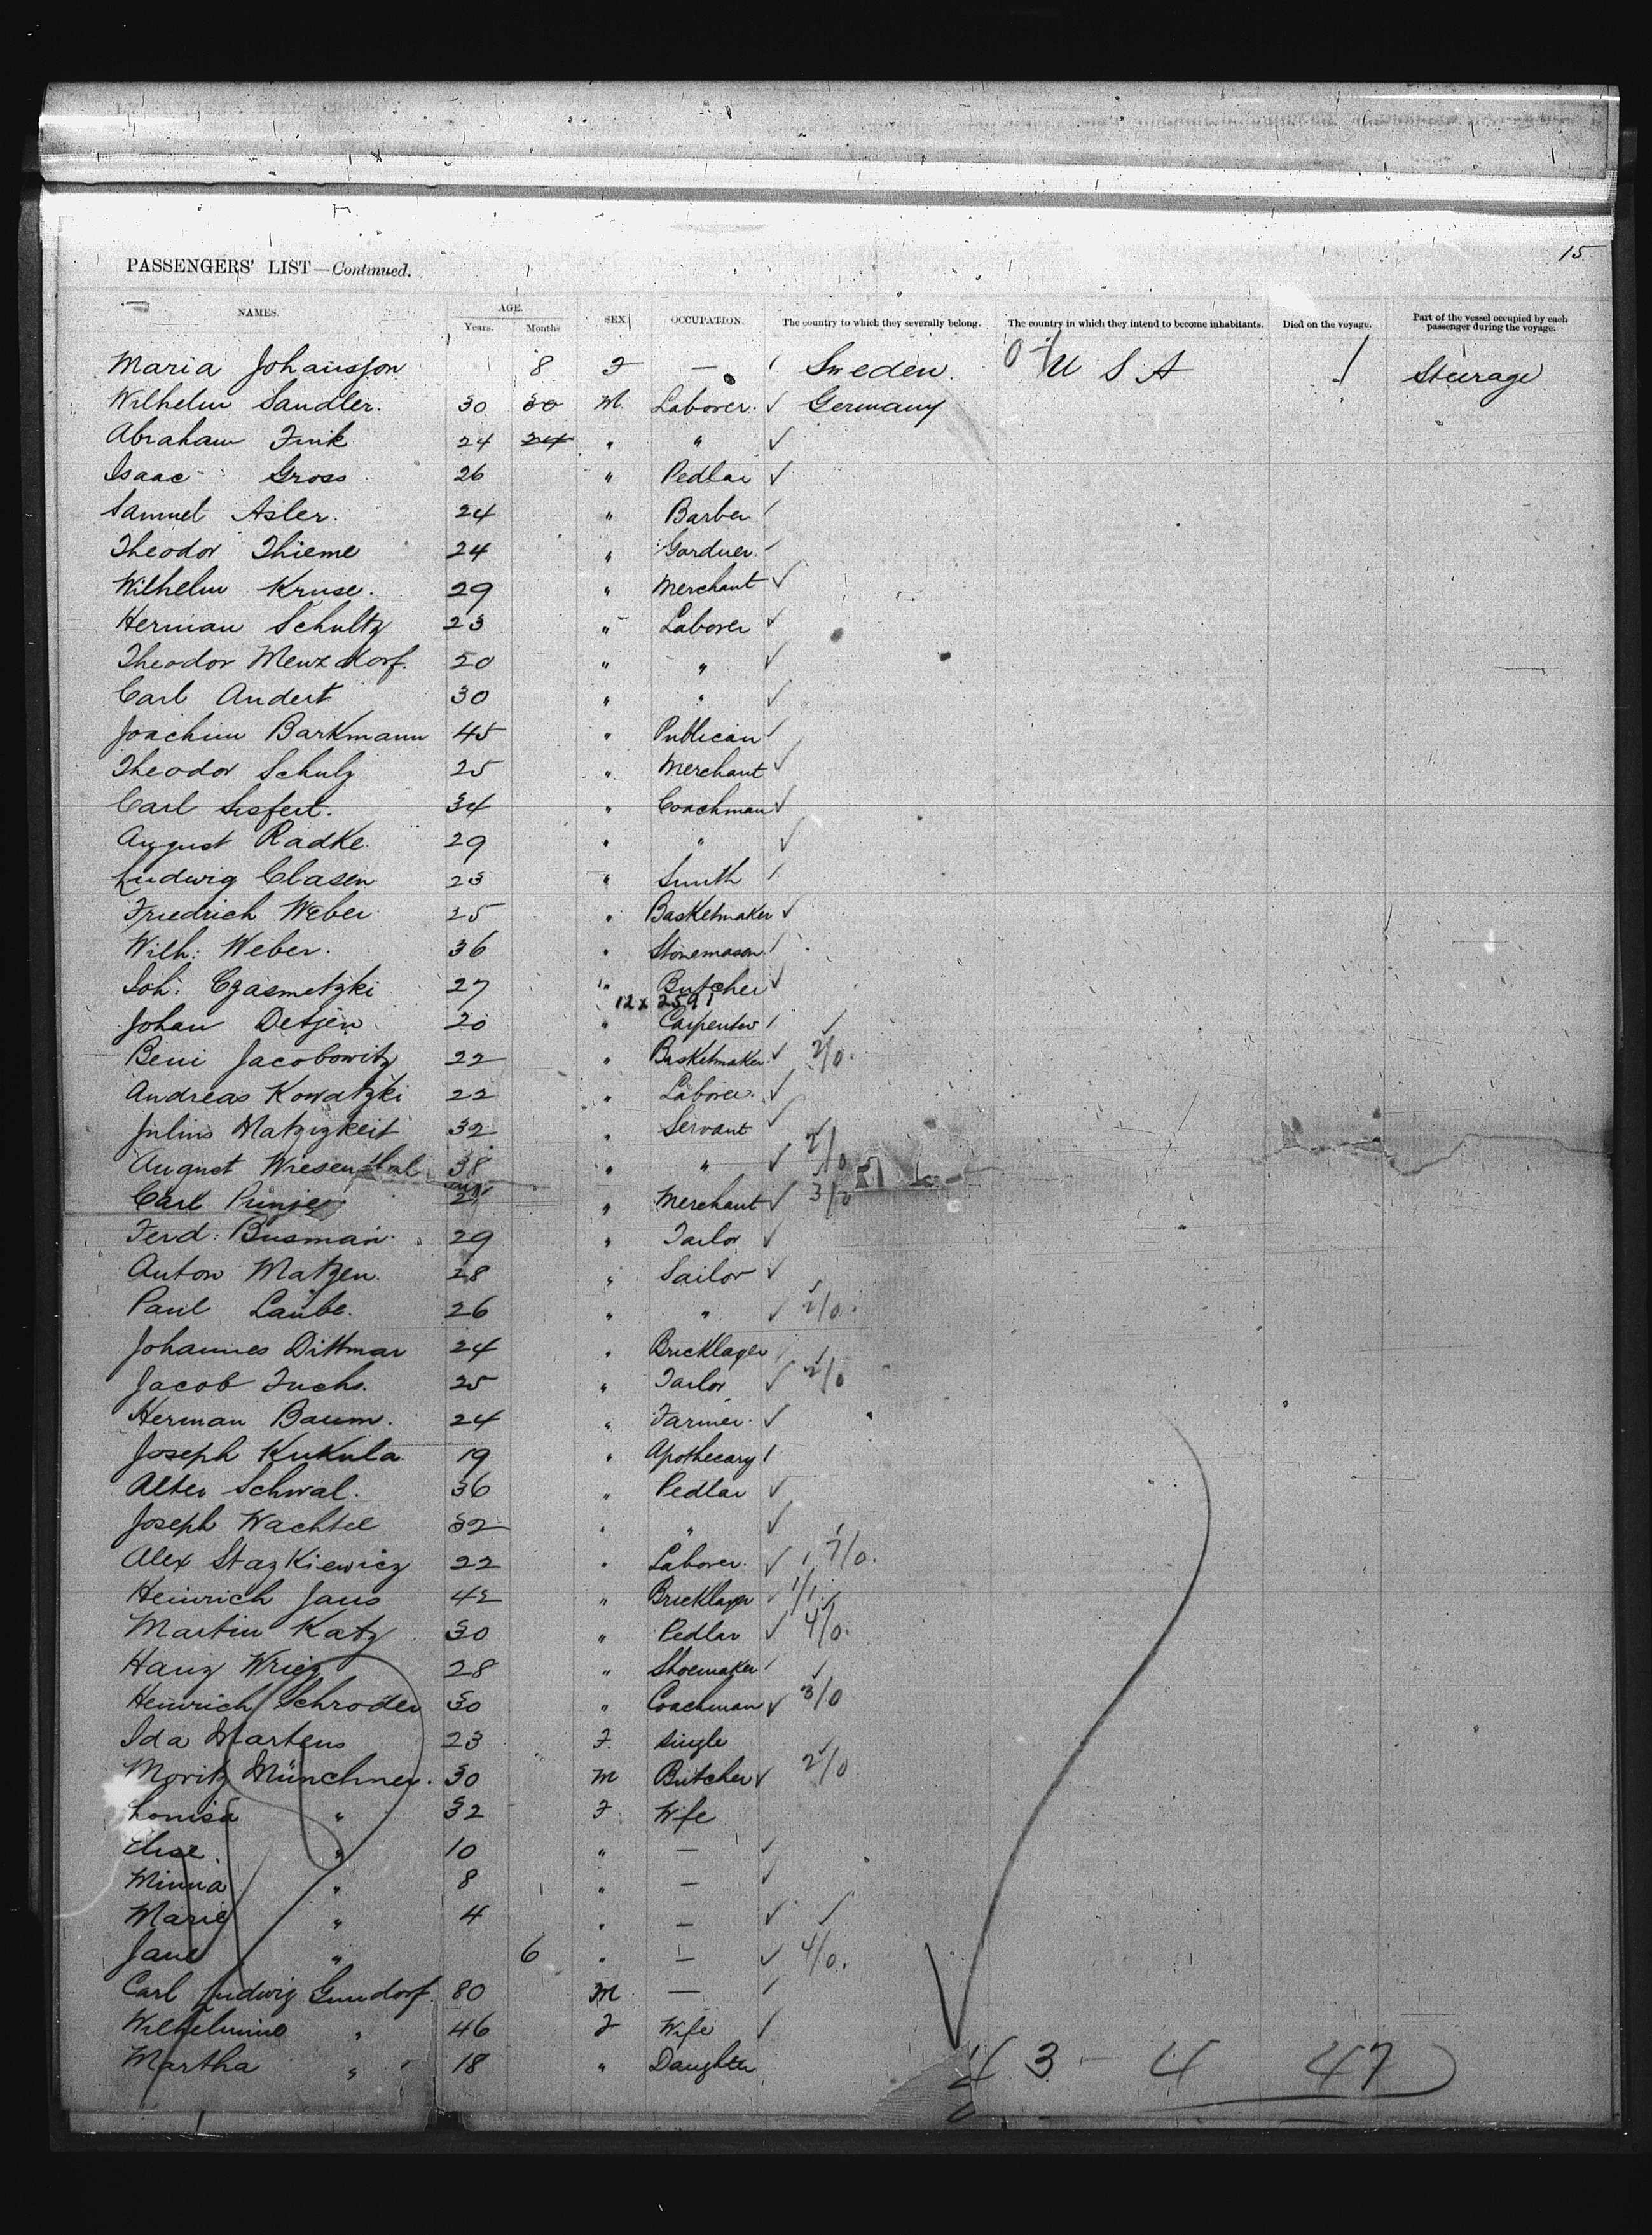 15
PASSENGERS' LIST—Continued.
NAMES. AGE. Years. Months SEX OCCUPATION. The country to which they severally belong. The country in which they intend to become inhabitants. Died on the voyage. Part of the vessel occupied by each passenger during the voyage.
Maria Johansson 8 F — Sweden USA Steerage
Wilhelm Sandler. 30 30 M. Laborer. ✓ Germany
Abraham Fink 24 24 " " ✓
Isaac Gross 26 " Pedlar ✓
Samuel Asler. 24 " Barber
Theodor Thieme 24 " Gardner.
Wilhelm Kruse. 29 " Merchant ✓
Herman Schultz 23 " Laborer ✓
Theodor Menzdorf. 20 " " ✓
Carl Andert 30 " " ✓
Joachim Barkmann 45 " Publican
Theodor Schulz 25 " Merchant ✓
Carl 34 " Coachman ✓
August Radke. 29 " " ✓
Ludwig Clasen 23 " Smith
Friedrich Weber 25 " Basketmaker ✓
Wilh: Weber. 36 " Stonemason
Joh. Czasmetzki 27 " Butcher ✓
12 x 2591
Johan Detjen 20 " Carpenter
Beni Jacobowitz 22 " Basketmaker ✓ 2/0.
Andreas Kowatzki 22 " Laborer. ✓
Julius Matzizkeit 32 " Servant ✓
August Wiesenthal 38 " " ✓ 2/0
Carl " Merchant ✓ 3/0
Ferd: Busman 29 " Tailor ✓
Anton Matzen. 28 " Sailor ✓
Paul Laube. 26 " " ✓ 2/0.
Johannes Dittmar 24 " Bricklayer
Jacob Fuchs. 25 " Tailor ✓ 2/0
Herman Baum. 24 " Farmer. ✓
Joseph Kukula 19 " Apothecary
Alter Schwal. 36 " Pedlar ✓
Joseph Wachtel 32 " " ✓
Alex Stazkiewicz 22 " Laborer. ✓ 7/0.
Heinrich Jans 42 " Bricklayer ✓ 1/1
Martin Katz 30 " Pedlar ✓ 4/0.
Hanz Wriez 28 " Shoemaker
Heinrich Schroder 30 " Coachman ✓ 3/0
Ida Martens 23 F. single
Moritz Münchner. 30 M Butcher ✓ 2/0
Louisa " 32 F Wife
Else " 10 " — ✓
Minna " 8 " — ✓
Marie " 4 " — ✓
Jane " 6 " — ✓ 4/0.
Carl Ludwig Gundorf. 80 M —
Wilhelmine " 46 F Wife
Martha " 18 " Daughter
43 – 4 47